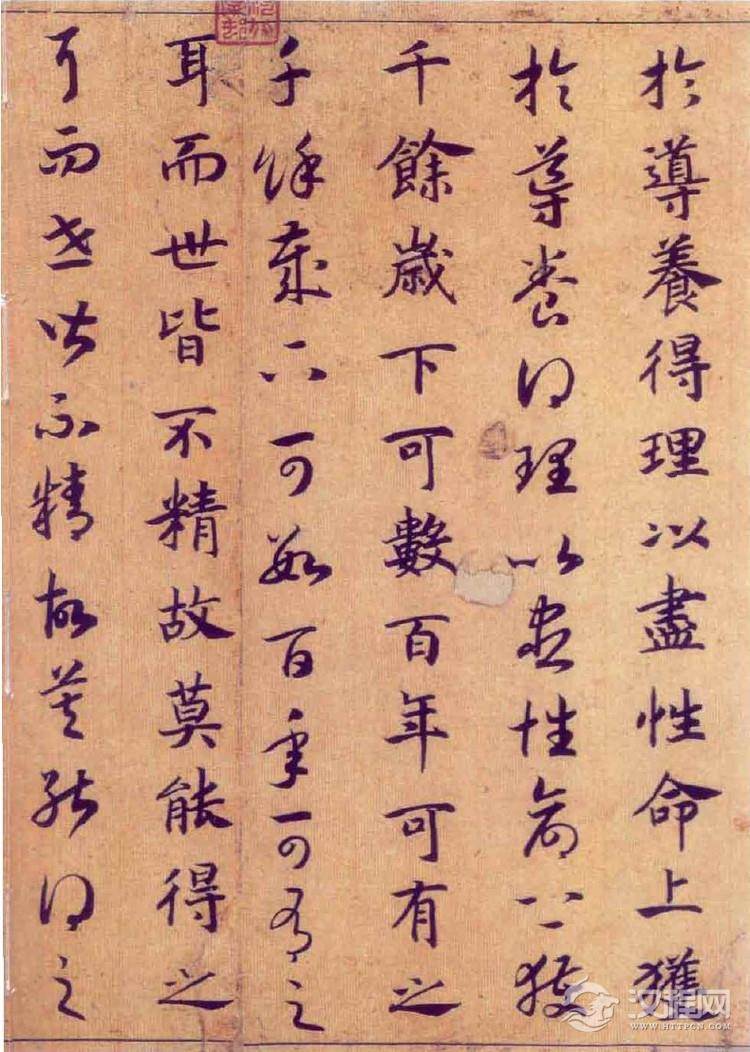 於導養得理以盡性命上獲
於導養得理以盡性命上獲
千餘歲下可數百年可有之
千餘歲下可數百年可有之
耳而世皆不精故莫能得之
耳而世皆不精故莫能得之
汉程网
WWW.HTTPCN.COM